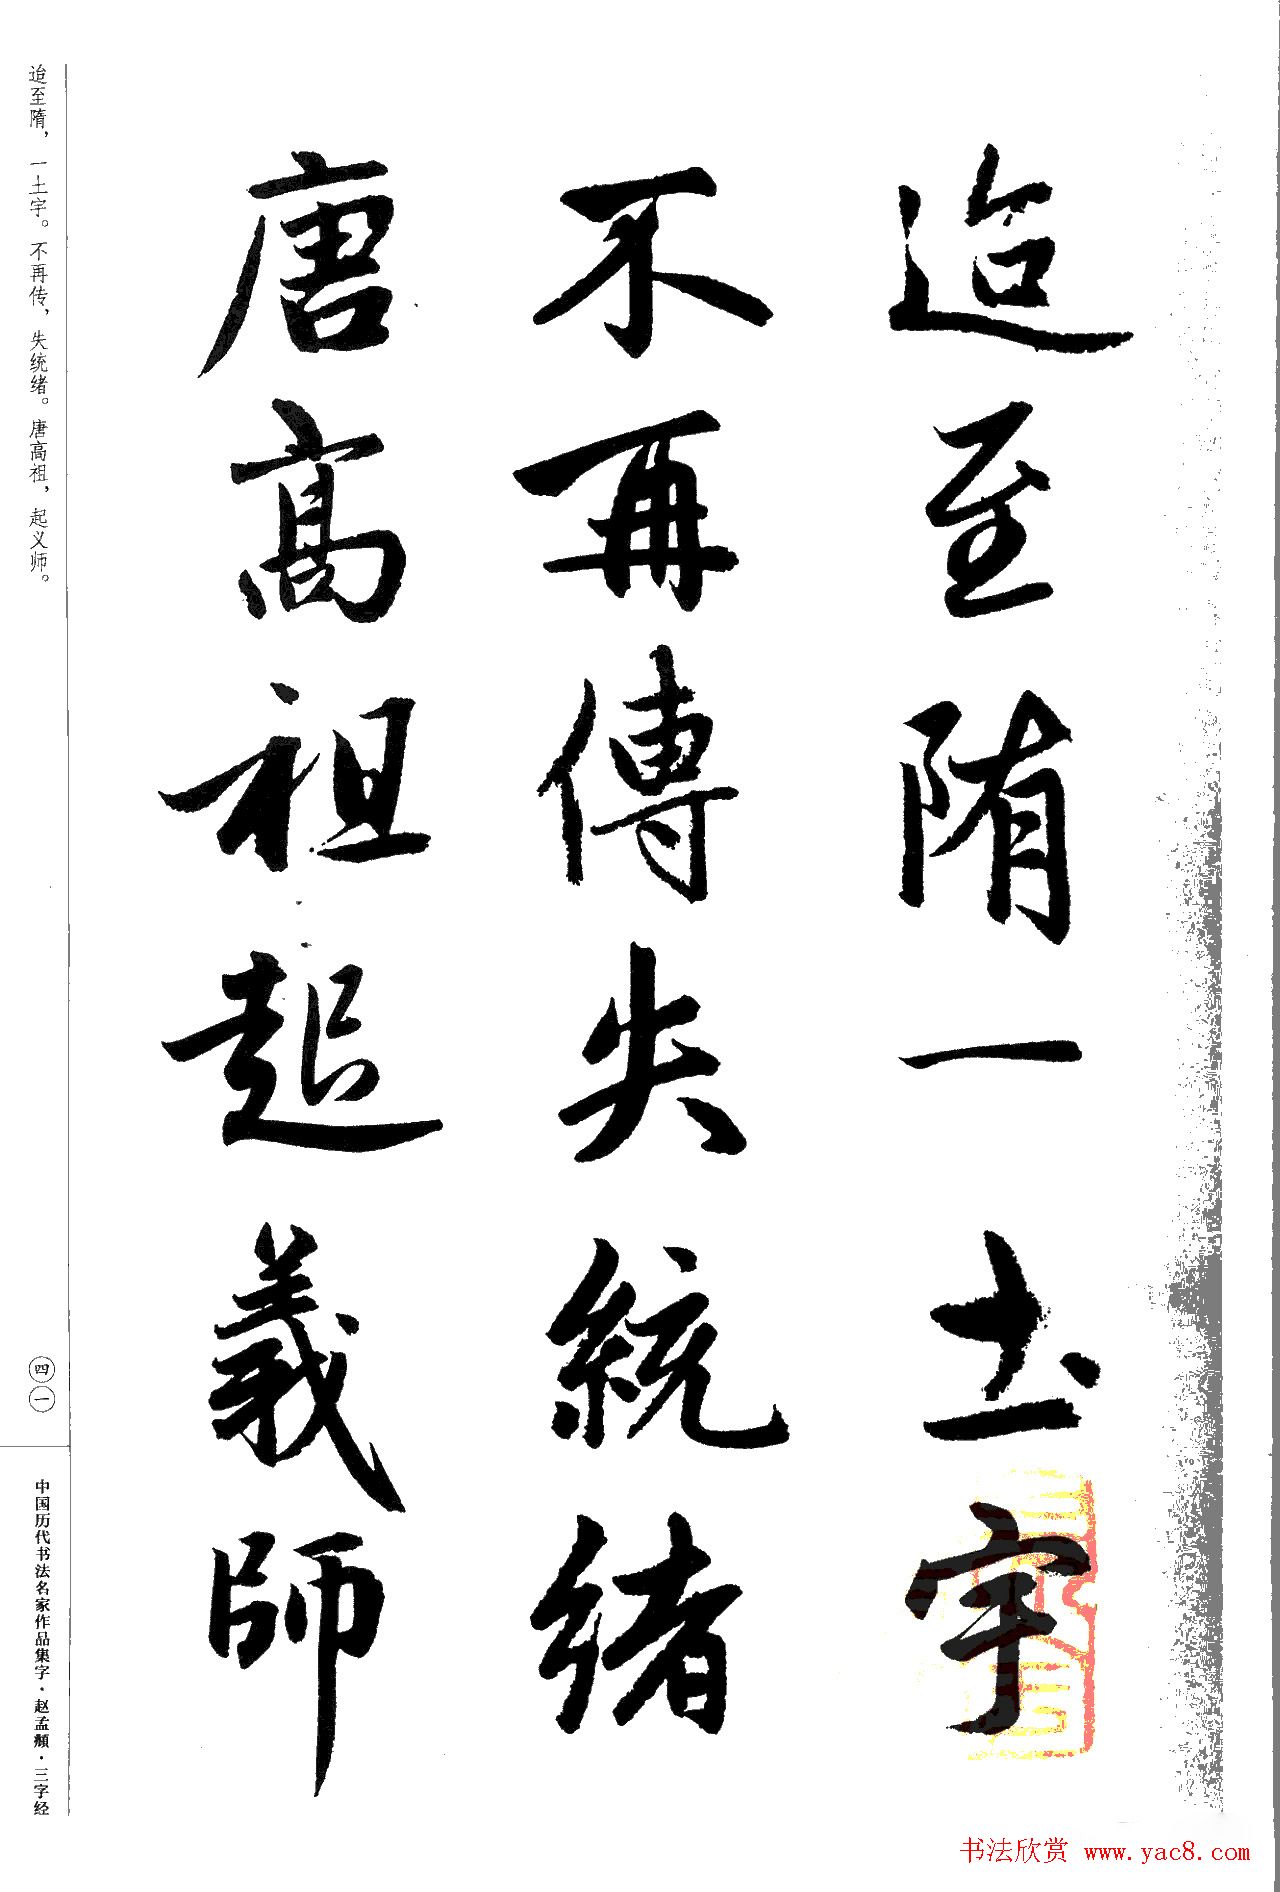 迨至隋一土宇
不再傳失統緒
唐高祖起義師
迨至隋，一土宇。不再传，失统绪。唐高祖，起义师。
四一
中国历代书法名家作品集字·赵孟頫·三字经
书法欣赏 www.yac8.com